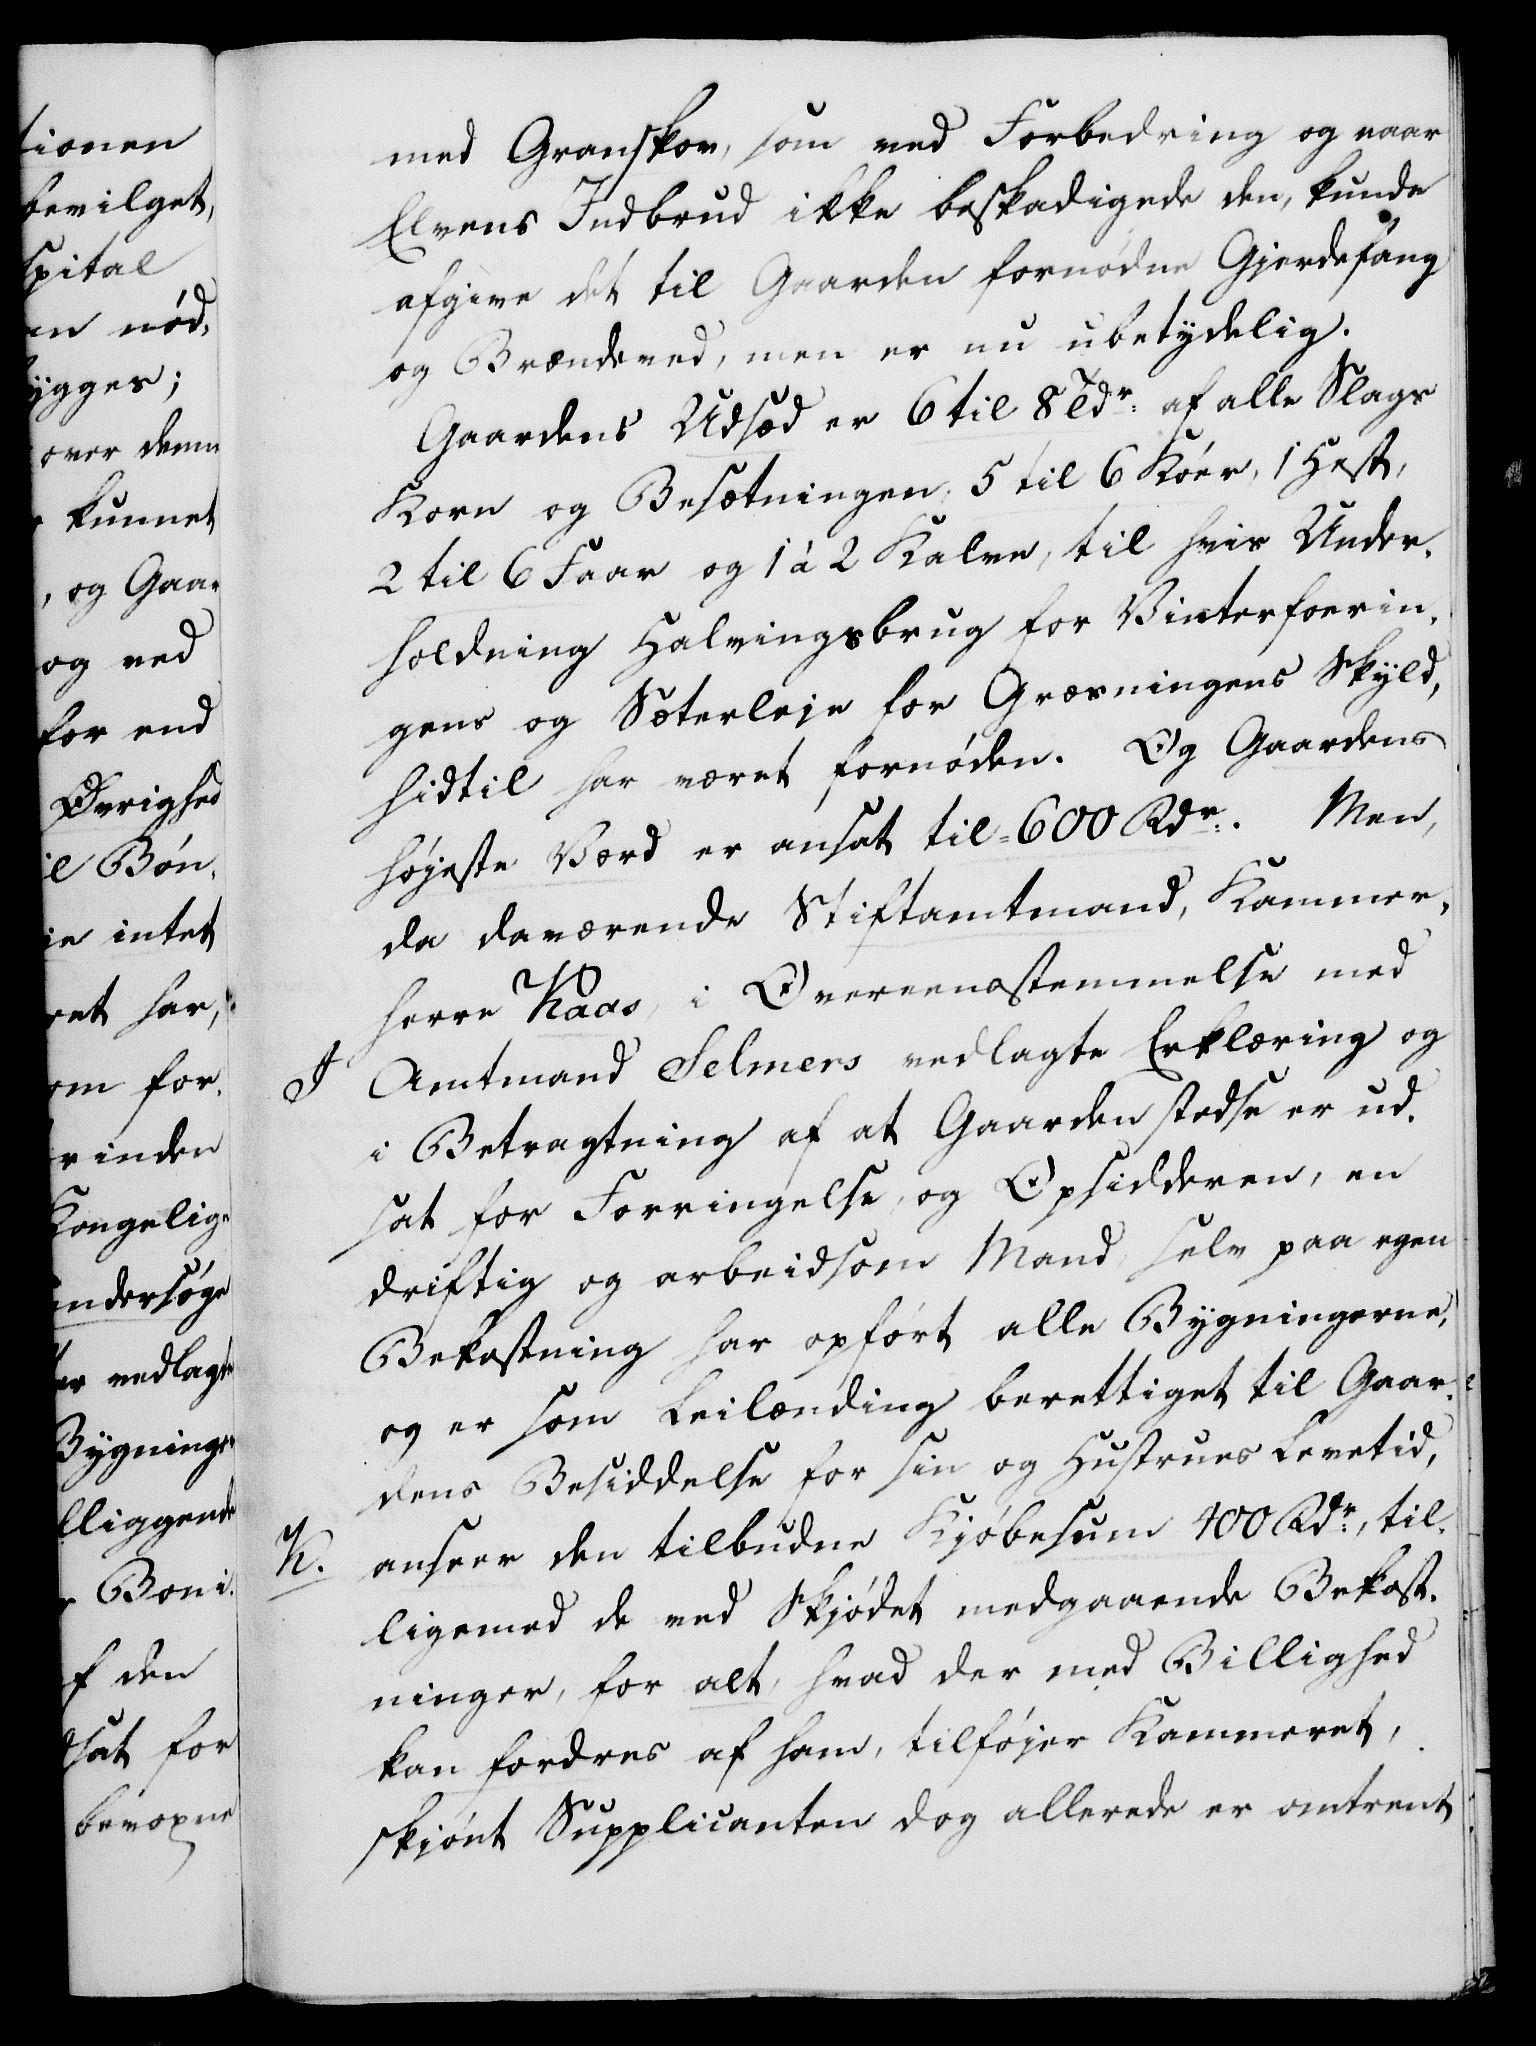 tionen
bevilget,
spital
en nød,
ygges;
over denn
kunnet
, og Gaa-
og ved
for end
Øvrighed
il Bøn,
ie intet
ret har,
om for,
r inden
Kongelig,
undersøge
er vedlagte
Bygnings,
lliggende
Boni,
f den
dsat for
bevoxne
med Granskov, som ved Forbedring og naar
Elvens Indbrud ikke beskadigede den, kunde
afgive det til Gaarden fornødne Gjerdefang
og Brændeved, men er nu ubetydelig.
Gaardens Udsæd er 6 til 8 Tdr: af alle Slags
Korn og Besætningen, 5 til 6 Køer, 1 Hest,
2 til 6 Faar og 1 à 2 Kalve, til hvis Under,
holdning Halvingsbrug for Vinterfoerin,
gens og Sæterleje for Græsningens Skyld,
hidtil har været fornøden. Og Gaardens
højeste Værd er ansat til 600 Rdr. Men,
da daværende Stiftamtmand, Kammer,
herre Kaas, i Overeensstemmelse med
J Amtmand Selmers vedlagte Erklæring og
i Betragtning af at Gaarden stedse er ud,
sat for Forringelse, og Opsidderen, en
driftig og arbeidsom Mand, selv paa egen
Bekostning har opført alle Bygningerne,
og er som Leilænding berettiget til Gaar,
dens Besiddelse for sin og Hustrues Levetid,
K. anseer den tilbudne Kjøbesum 400 Rdr:, til,
ligemed de ved Skjødet medgaaende Bekost,
ninger, for alt, hvad der med Billighed
kan fordres af ham, tilføjer Kammeret,
skjønt Supplicanten dog allerede er omtrent